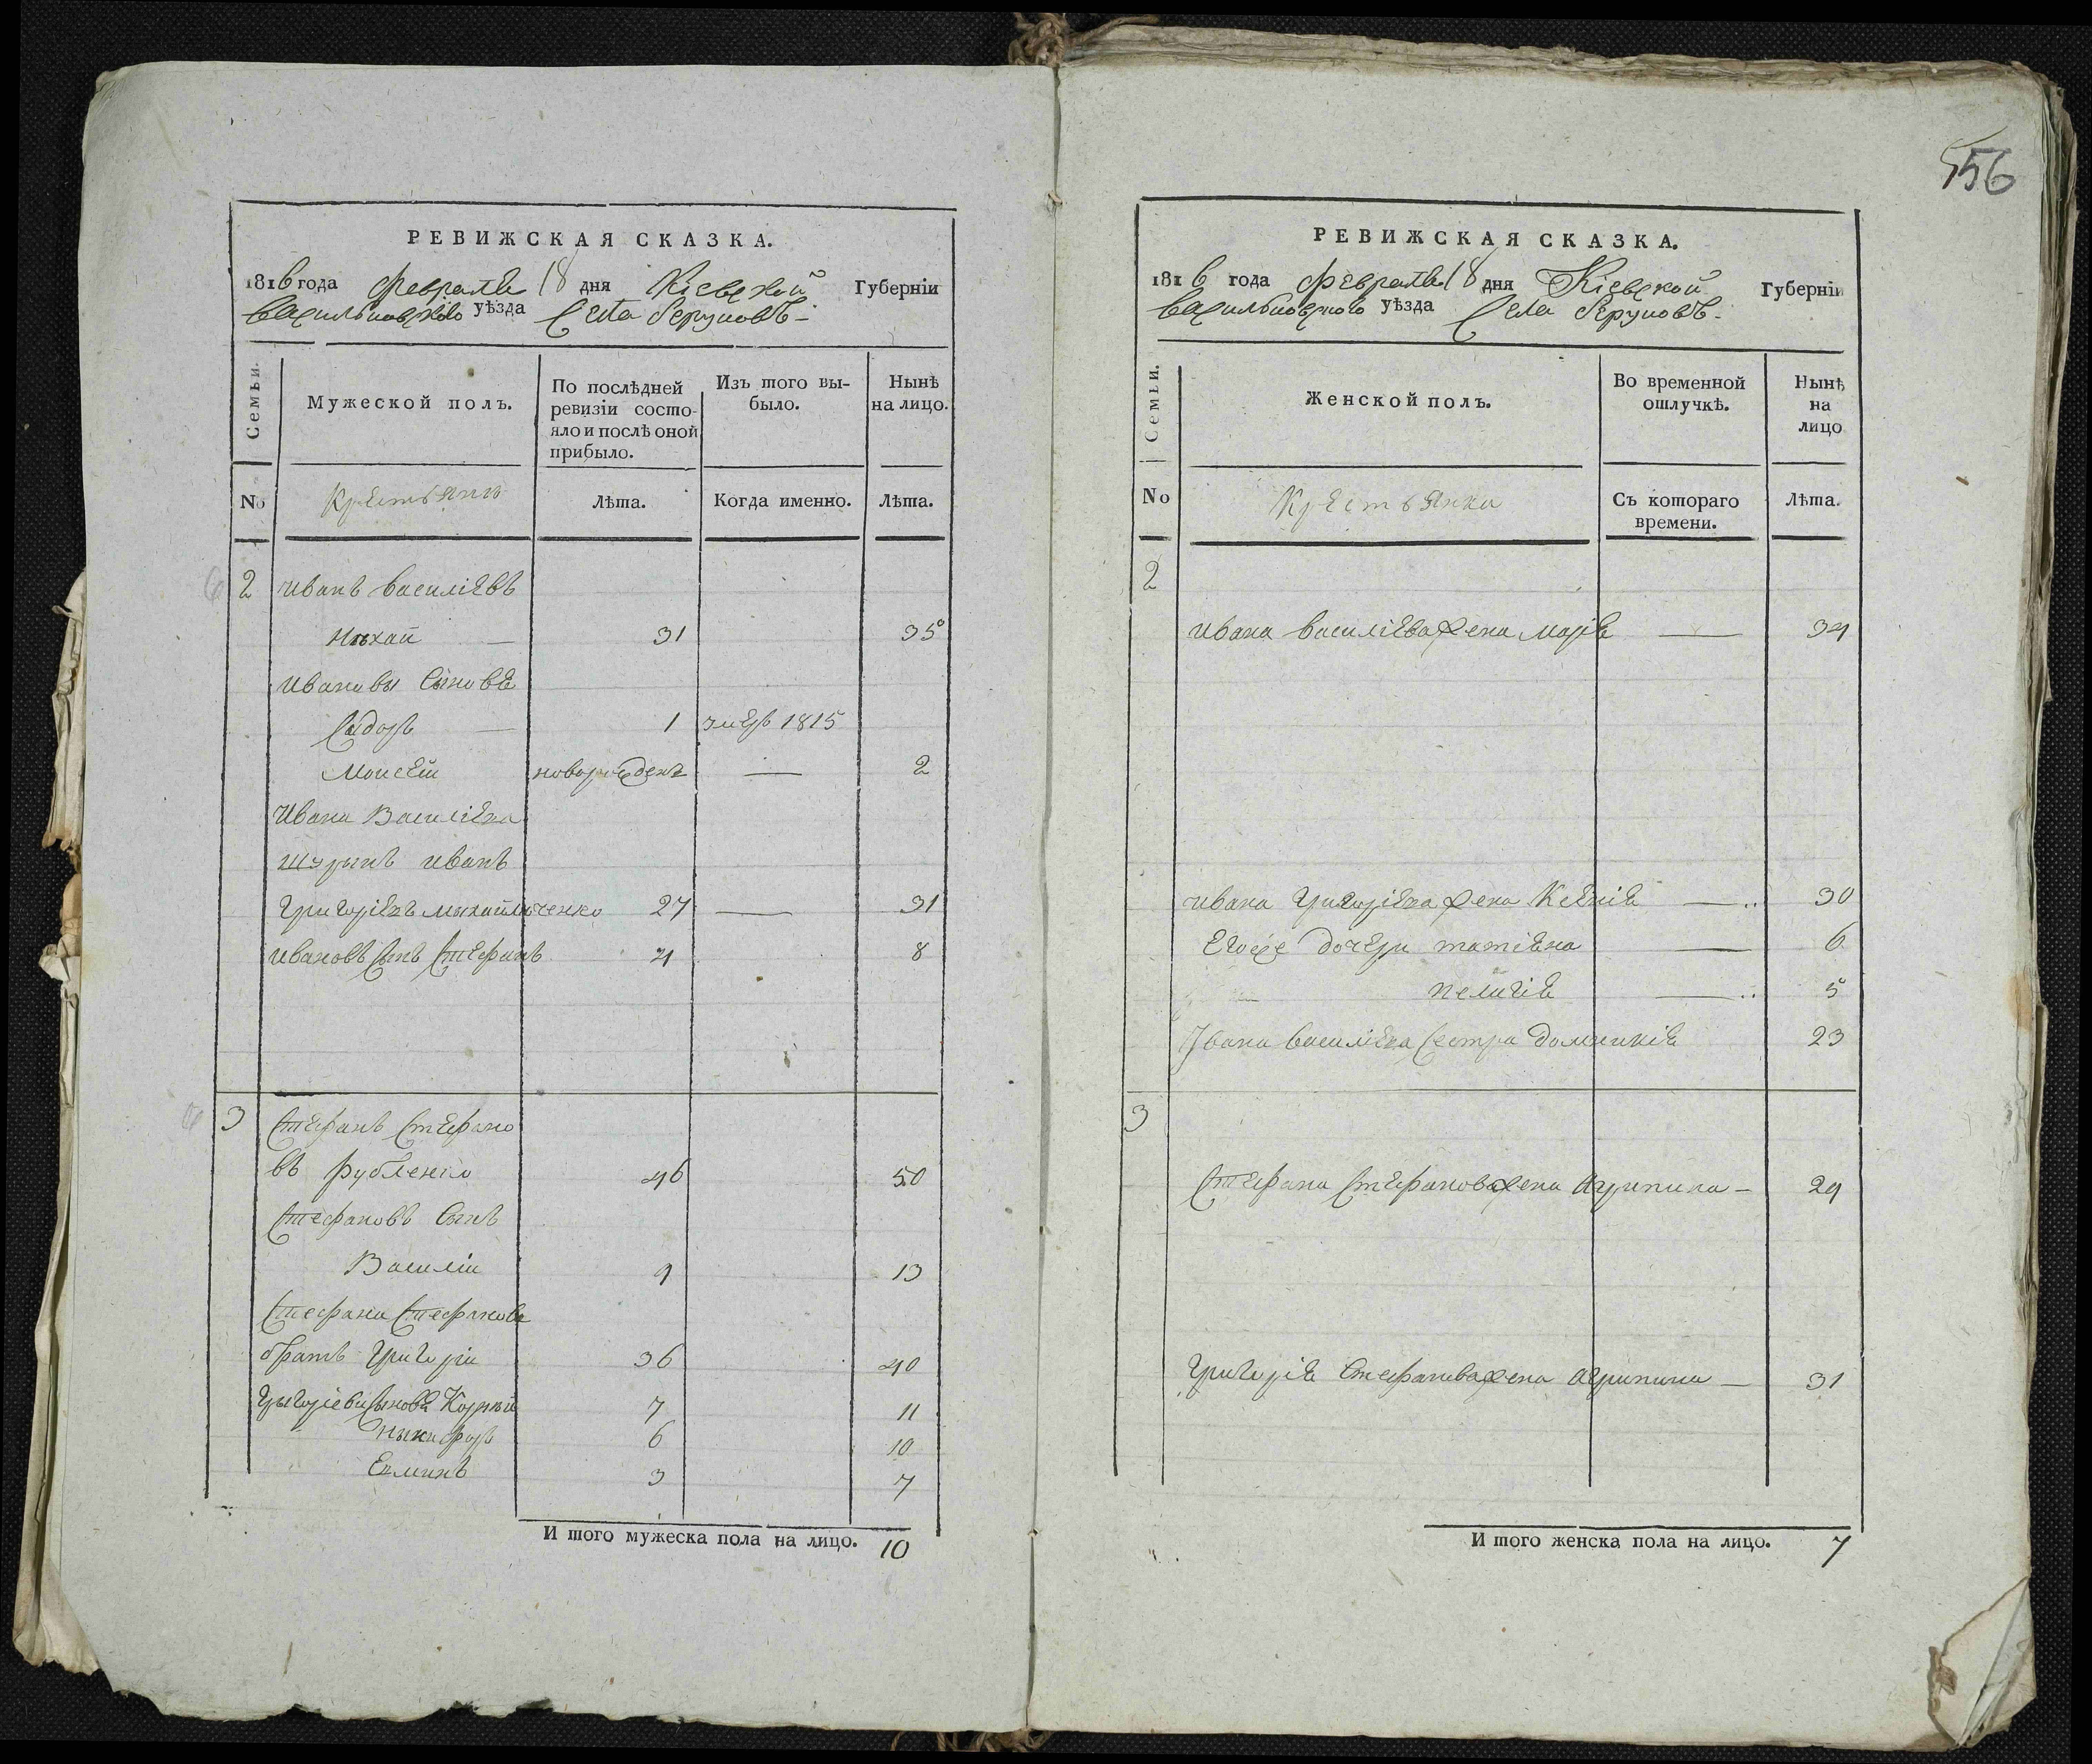 РЕВИЖСКАЯ СКАЗКА.
1816 года Февраля 18 дня Кіевской Губерніи
Васильковского уѣзда Села
Семьи.
Мужеской полъ.
По послѣдней ревизіи состояло и послѣ оной прибыло.
Изъ того выбыло.
Нынѣ на лицо.
No
Крестьяне
Лѣта.
Когда именно.
Лѣта.
2 Иванъ Василіевъ
31 35
Ивановы Сыновѣ
Сидоръ 1 умеръ 1815
Моисей новорожденъ — 2
Ивана Василіева
шуринъ Иванъ
Григоріевъ Михайличенко 27 — 31
Ивановъ Сынъ Стефанъ 4 8
3 Стефанъ Стефано
въ Рубленко 46 50
Стефановъ Сынъ
Василій 9 13
Стефана Стефанова
братъ Григорій 36 40
Григоріевы Сыновѣ Корній 7 11
Никифоръ 6 10
3 7
И того мужеска пола на лицо. 10
556
РЕВИЖСКАЯ СКАЗКА.
1816 года Февраля 18 дня Кіевской Губерніи
Васильковского уѣзда Села
Семьи.
Женской полъ.
Во временной отлучкѣ.
Нынѣ на лицо
No
Крестьянки
Съ котораго времени.
Лѣта.
2
Ивана Василіева жена Марія — 34
Ивана Григоріева жена Ксенія — 30
Егоже дочери татіяна — 6
пелагія — 5
Ивана Василіева Сестра Домникія 23
3
Стефана Стефанова жена Агрипина — 29
Григорія Стефанова жена Агрипина — 31
И того женска пола на лицо. 7